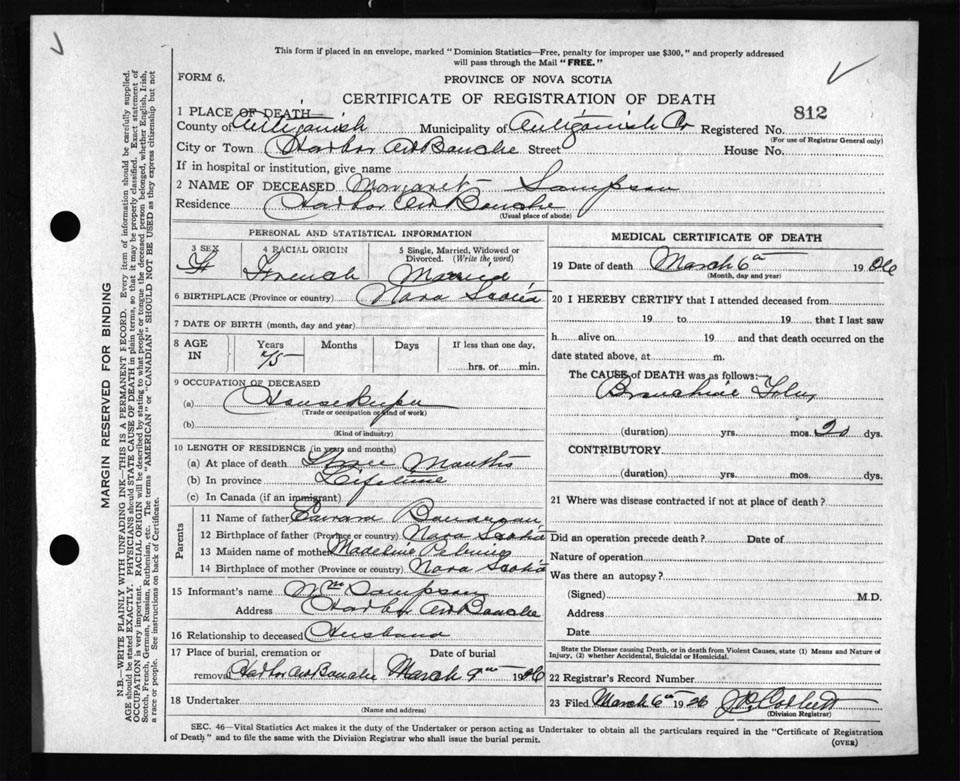 This form if placed in an envelope, marked "Dominion Statistics—Free, penalty for improper use $300," and properly addressed
will pass through the Mail "FREE."
FORM 6.
PROVINCE OF NOVA SCOTIA
CERTIFICATE OF REGISTRATION OF DEATH
812
1 PLACE OF DEATH—
County of Antigonish Municipality of Antigonish Co Registered No.
(For use of Registrar General only)
City or Town Harbor Au Bouche Street House No.
If in hospital or institution, give name
2 NAME OF DECEASED Margaret Sampson
Residence Harbor Au Bouche
(Usual place of abode)
PERSONAL AND STATISTICAL INFORMATION
3 SEX 4 RACIAL ORIGIN 5 Single, Married, Widowed or Divorced. (Write the word)
F French Married
6 BIRTHPLACE (Province or country) Nova Scotia
7 DATE OF BIRTH (month, day and year)
8 AGE IN Years Months Days If less than one day,
75 hrs. or min.
9 OCCUPATION OF DECEASED
(a) Housekeeper
(Trade or occupation or kind of work)
(b)
(Kind of industry)
10 LENGTH OF RESIDENCE (in years and months)
(a) At place of death Three Months
(b) In province Lifetime
(c) In Canada (if an immigrant)
Parents
11 Name of father
12 Birthplace of father (Province or country) Nova Scotia
13 Maiden name of mother Madeline
14 Birthplace of mother (Province or country) Nova Scotia
15 Informant's name Wm Sampson
Address Harbor Au Bouche
16 Relationship to deceased Husband
17 Place of burial, cremation or removal Date of burial
Harbor Au Bouche March 9th 1926
18 Undertaker
(Name and address)
MEDICAL CERTIFICATE OF DEATH
19 Date of death March 6th 1926
(Month, day and year)
20 I HEREBY CERTIFY that I attended deceased from
19 to 19 that I last saw
h alive on 19 and that death occurred on the
date stated above, at m.
The CAUSE of DEATH was as follows:
(duration) yrs. mos. 20 dys.
CONTRIBUTORY
(duration) yrs. mos. dys.
21 Where was disease contracted if not at place of death?
Did an operation precede death? Date of
Nature of operation
Was there an autopsy?
(Signed) M.D.
Address
Date
State the Disease causing Death, or in death from Violent Causes, state (1) Means and Nature of
Injury, (2) whether Accidental, Suicidal or Homicidal.
22 Registrar's Record Number
23 Filed March 6th 1926
(Division Registrar)
SEC. 46—Vital Statistics Act makes it the duty of the Undertaker or person acting as Undertaker to obtain all the particulars required in the "Certificate of Registration
of Death" and to file the same with the Division Registrar who shall issue the burial permit.
(OVER)
MARGIN RESERVED FOR BINDING
N.B.—WRITE PLAINLY WITH UNFADING INK—THIS IS A PERMANENT RECORD. Every item of information should be carefully supplied.
AGE should be stated EXACTLY. PHYSICIANS should STATE CAUSE OF DEATH in plain terms, so that it may be properly classified. Exact statement of
OCCUPATION is very important. RACIAL ORIGIN will be described by stating to what people or tongue the deceased person belonged, whether English, Irish,
Scotch, French, German, Russian, Ruthenian, etc. The terms "AMERICAN" or "CANADIAN" SHOULD NOT BE USED as they express citizenship but not
a race or people. See instructions on back of Certificate.